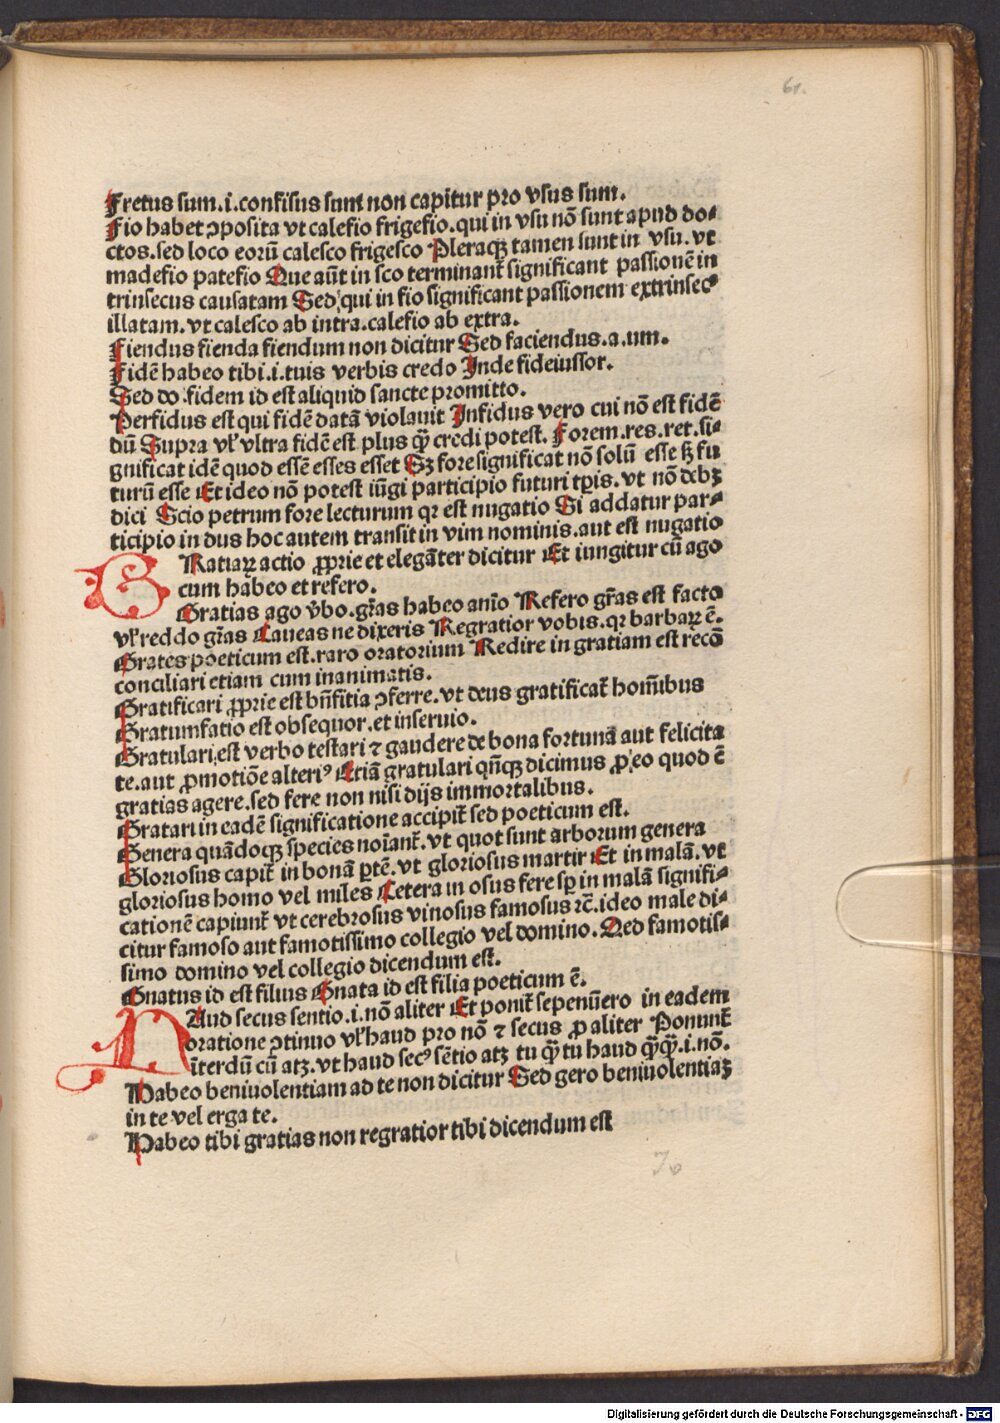 61.
Fretus sum.i.confisus sum non capitur pro vsus sum.
Fio habet ↄposita vt calefio frigefio.qui in vsu nō sunt apud do⸗
ctos.sed loco eorū calesco frigesco Pleraqꝫ tamen sunt in vsu.vt
madefio patefio Que aūt in sco terminant᷑ significant passionē in
trinsecus causatam Sed qui in fio significant passionem extrinsecꝰ
illatam.vt calesco ab intra.calefio ab extra.
Fiendus fienda fiendum non dicitur Sed faciendus.a.um.
Fidē habeo tibi.i.tuis verbis credo Inde fideiussor.
Sed do fidem id est aliquid sancte promitto.
Perfidus est qui fidē datā violauit Infidus vero cui nō est fidē
dū Supra vl̕ vltra fidē est plus q̄ȝ credi potest. Forem.res.ret.si⸗
gnificat idē quod essē esses esset Sꝫ fore significat nō solū esse sꝫ fu
turū esse Et ideo nō potest iūgi participio futuri tp̄is.vt nō debꝫ
dici Scio petrum fore lecturum qꝛ est nugatio Si addatur par⸗
ticipio in dus hoc autem transit in vim nominis.aut est nugatio
GRatiaꝝ actio ꝓprie et elegāter dicitur Et iungitur cū ago
cum habeo et refero.
Gratias ago v̄bo.gr̄as habeo aīo Refero gr̄as est facto
vl̕ reddo gr̄as Caueas ne dixeris Regratior vobis.qꝛ barbaꝝ ē.
Grates poeticum est.raro oratorium Redire in gratiam est recō
conciliari etiam cum inanimatis.
Gratificari ꝓprie est bn̄fitia ↄferre.vt deus gratificat᷑ hoīibus
Gratumfatio est obsequor.et inseruio.
Gratulari est verbo testari ⁊ gaudere de bona fortunā aut felicita
te.aut ꝓmotiōe alteriꝰ Etiā gratulari qn̄qꝫ dicimus ꝓ eo quod ē
gratias agere.sed fere non nisi dijs immortalibus.
Gratari in eadē significatione accipit᷑ sed poeticum est.
Genera quādoqꝫ species noīant᷑.vt quot sunt arborum genera
Gloriosus capit᷑ in bonā ꝑtē.vt gloriosus martir Et in malā.vt
gloriosus homo vel miles Cetera in osus fere sꝑ in malā signifi⸗
cationē capiunt᷑ vt cerebrosus vinosus famosus ⁊c̄.ideo male di⸗
citur famoso aut famotissimo collegio vel domino.Qed famotis⸗
simo domino vel collegio dicendum est.
Gnatus id est filius Gnata id est filia poeticum ē.
HAud secus sentio.i.nō aliter Et ponit᷑ sepenūero in eadem
oratione ↄtinuo vl̕ haud pro nō ⁊ secus ꝓ aliter Ponunt᷑
īterdū cū atꝫ.vt haud secꝰ sētio atꝫ tu q̄ȝ tu haud q̄ȝq̄ȝ.i.nō.
Habeo beniuolentiam ad te non dicitur Sed gero beniuolentiaꝫ
in te vel erga te.
Habeo tibi gratias non regratior tibi dicendum est
Digitalisierung gefördert durch die Deutsche Forschungsgemeinschaft - DFG